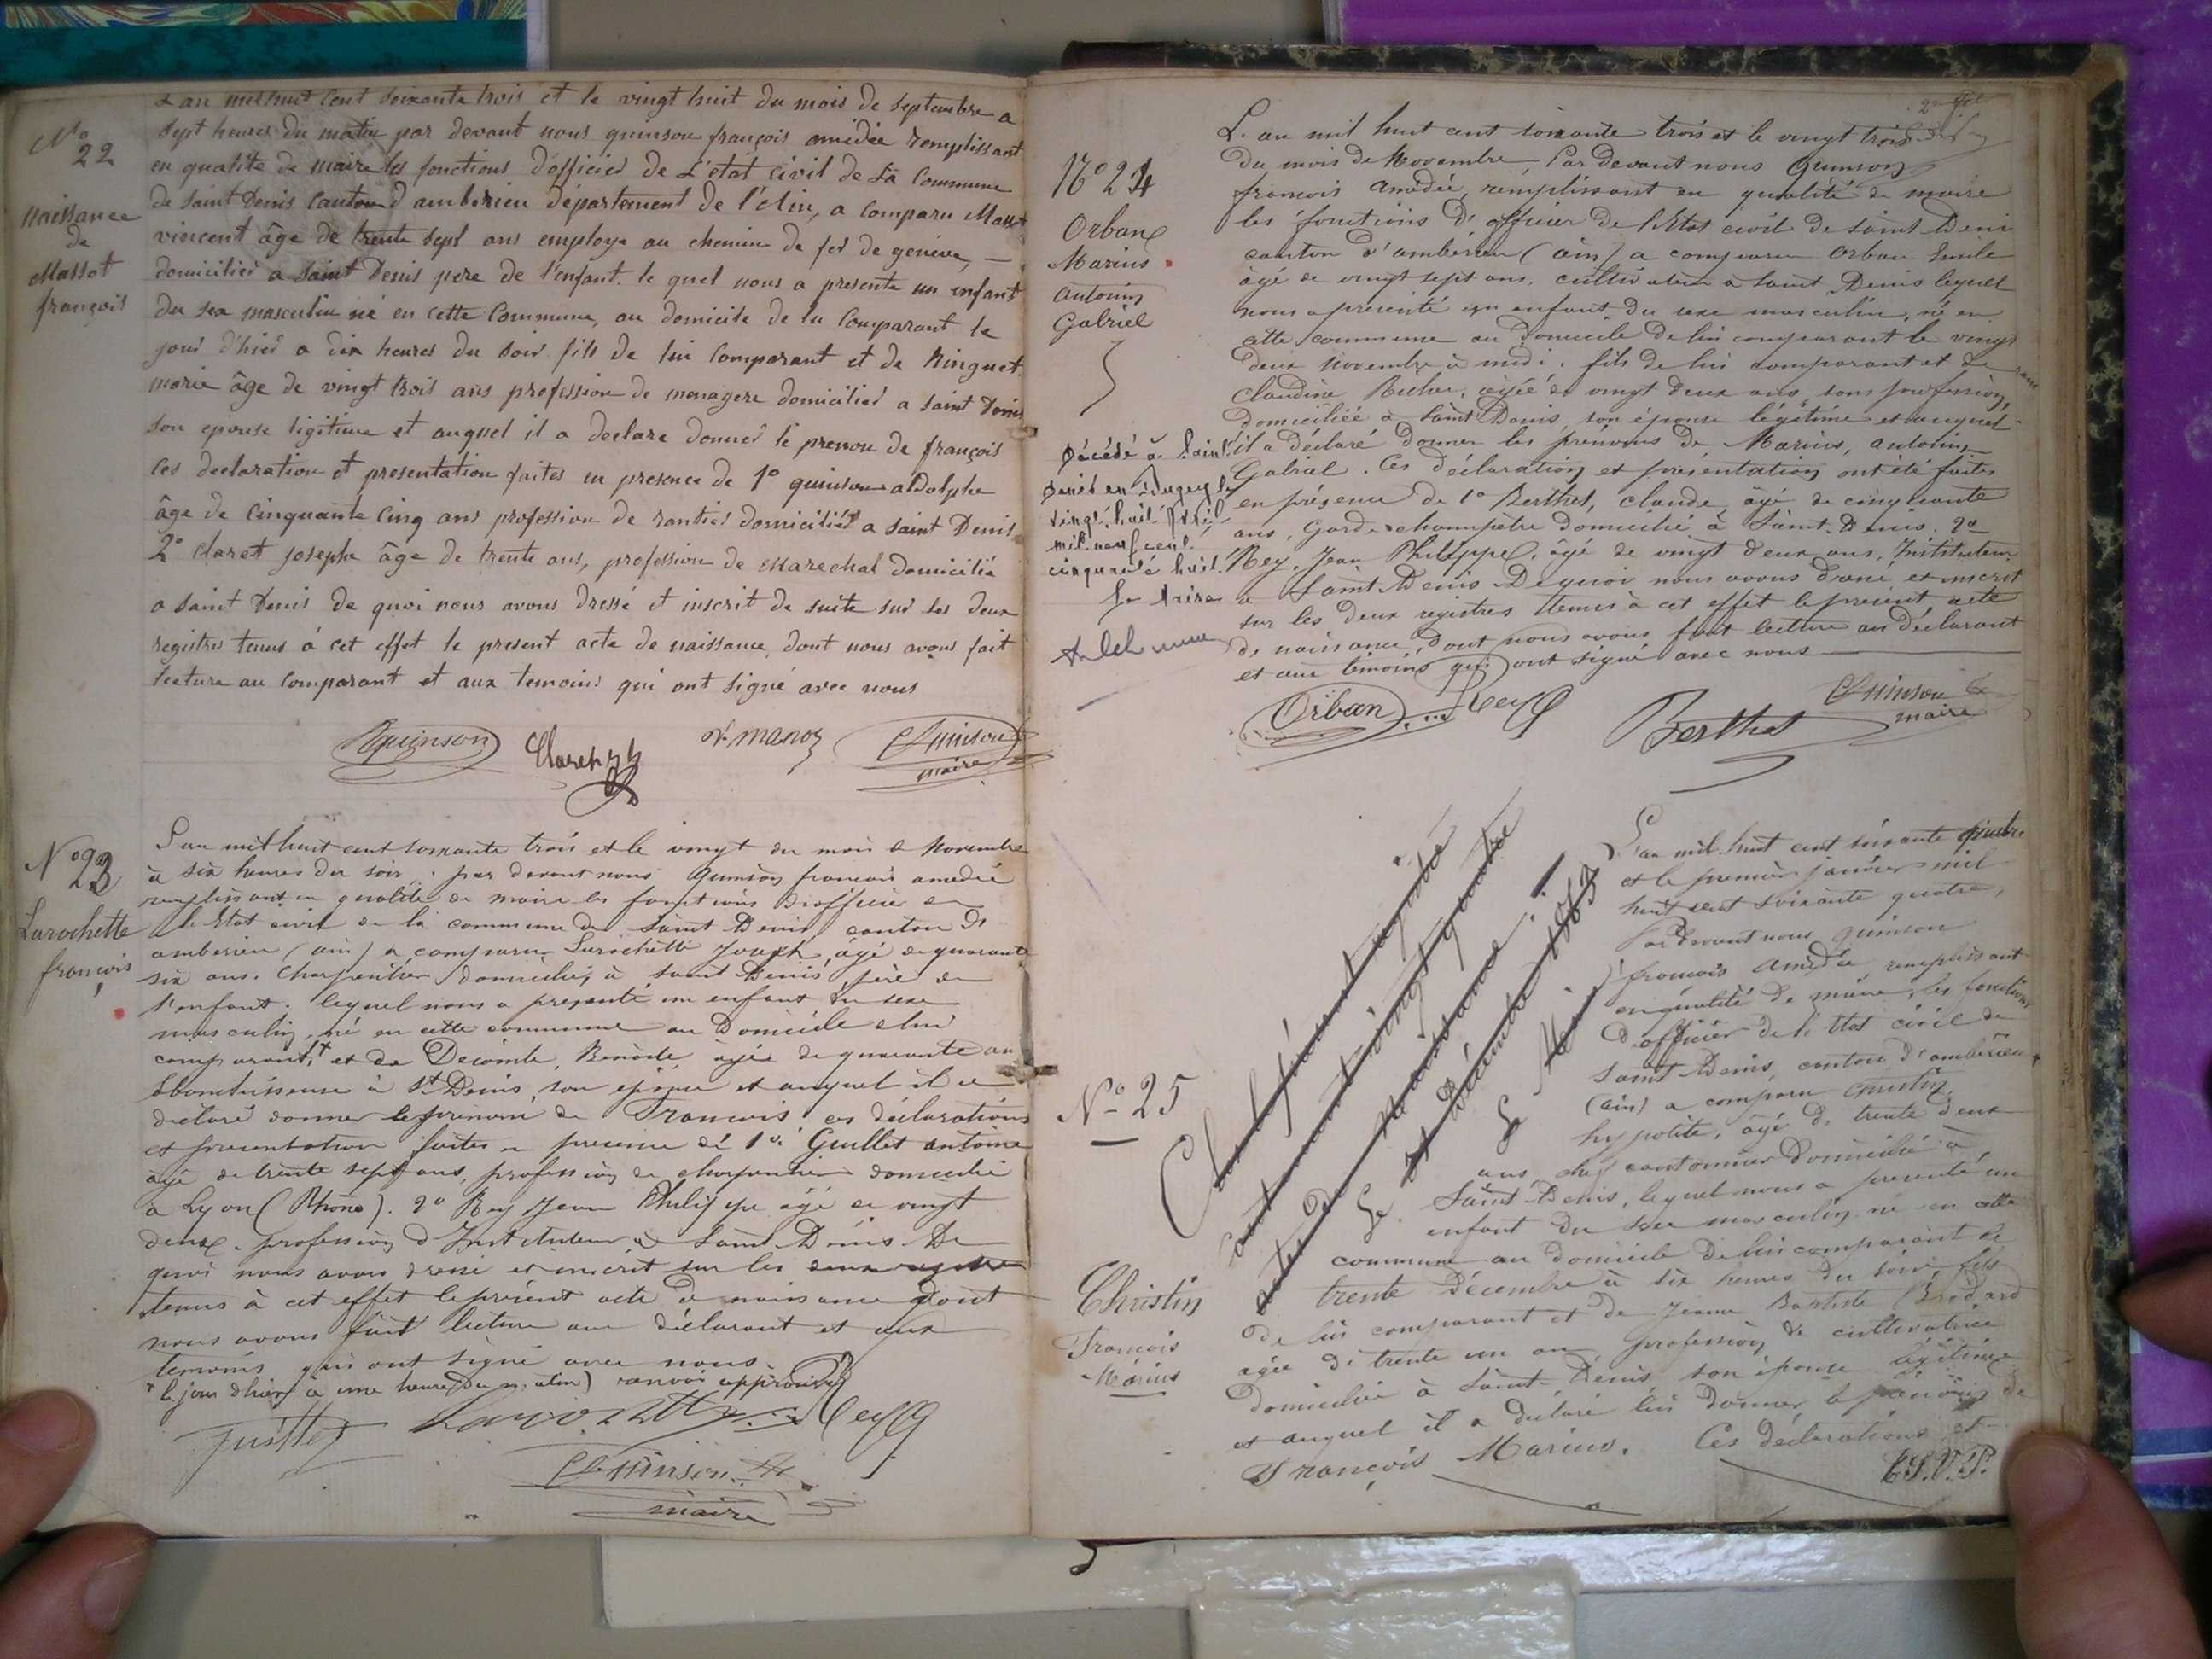 N° 22
naissance
de
Massot
françois
L'an mil huit cent soixante trois et le vingt huit du mois de septembre a
sept heures du matin par devant nous quinson françois amédée remplissant
en qualité de maire les fonctions d'officier de L'état civil de La Commune
de saint Denis Canton d'amberieu département de l'Ain, a comparu Massot
vincent âge de trente sept ans employe au chemin de fer de genève, —
domicilier a saint Denis pere de l'enfant. le quel nous a presente un enfant
du sex masculin né en cette Commune, au domicile de lu Comparant le
jour d'hier a dix heures du soir. fils de lui Comparant et de Ringuet
marie âge de vingt trois ans profession de menagere domicilier a saint Denis
son epouse ligitime et auquel il a declare donner le prenou de françois
Ces declaration et presentation faites en presence de 1° quinson adolphe
âge de Cinquante Cinq ans profession de rantier domicilier a saint Denis
2° Claret joseph âge de trente ans, profession de Marechal domicilié
a saint Denis de quoi nous avons dressé et inscrit de suite sur les deux
registres tenus à cet effet le present acte de naissance, dont nous avons fait
lecture au Comparant et aux temoins qui ont signé avec nous
Aquinson Claret jh Quinson
maire
N° 23
Larochette
françois
L'an mil huit cent soixante trois et le vingt du mois de Novembre
à six heures du soir, par devant nous Quinson françois amédée
remplissant en qualité de maire les fonctions d'officier de
l'Etat civil de la commune de Saint Denis, canton de
amberieu (ain) a comparu Larochette Joseph, âgé de quarante
six ans. Charpentier domicilié, à Saint Denis, père de
l'enfant; lequel nous a présenté un enfant du sexe
masculin, né en cette commune au Domicile de lui
comparant, + et de Decomble, Benoite, âgée de quarante an
à St Denis, son epouse et auquel il a
déclaré donner le prenom de François, ces déclarations
et presentation faites en presence de 1° Guillet antoine
âgé de trente sept ans, profession de charpentier domicilié
à Lyon (Rhône). 2° Rey Jean Philippe âgé de vingt
deux. profession d'Instituteur à Saint Denis De
quoi nous avons dressé et inscrit sur les deux registres
tenus à cet effet le présent acte de naissance dont
nous avons fait lecture au déclarant et aux
temoins qui ont signé avec nous.
+ le jour d'hier à une heure (du matin) renvoi approuvé
Guillet Larochette Rey
Quinson
maire
N° 24
Orban
Marius
Antonin
Gabriel
Décédé à Saint
Denis en Bugey le
vingt huit Avril
mil neuf cent
cinquante huit.
Le Maire
L'an mil huit cent soixante trois et le vingt trois
du mois de Novembre, Par devant nous Quinson
françois Amédée, remplissant en qualité de maire
les fonctions d'officier de l'Etat civil de Saint Denis
canton d'ambérieu (ain) a comparu Orban Emile
âgé de vingt sept ans, cultivateur à Saint Denis lequel
nous a présenté un enfant du sexe masculin, né en
cette commune au domicile de lui comparant le vingt
deux Novembre à midi, fils de lui comparant et de
Claudine âgée de vingt deux ans, sans profession,
domiciliée à Saint Denis, son épouse légitime et auquel
il a déclaré donner les prénoms de Marius, antonin,
Gabriel. Ces déclaration et présentation ont été faites
en présence de 1° Berthet, Claude, âgé de cinquante
ans, Garde champêtre domicilié à Saint Denis. 2°
Rey, Jean Philippe, âgé de vingt deux ans, Instituteur
à Saint Denis De quoi nous avons dressé et inscrit
sur les deux registres tenus à cet effet le présent acte
de naissance, dont nous avons fait lecture au déclarant
et aux témoins qui ont signé avec nous
Orban Rey Berthet Quinson
maire
Clos le présent registre
contenant vingt quatre
actes de Naissance.
Le 31 Décembre 1863
Le Maire
N° 25
Christin
François
Marius
L'an mil huit cent soixante quatre
et le premier janvier mil
huit cent soixante quatre,
Par devant nous quinson
françois Amédée remplissant
en qualité de maire, les fonctions
d'officier de l'Etat civil de
Saint Denis, canton d'ambérieu
(ain) a comparu Christin,
hypolite, âgé de trente deux
ans chef cantonnier domicilié à
Saint Denis, lequel nous a présenté un
enfant du sexe masculin né en cette
commune au domicile de lui comparant le
trente Décembre à six heures du soir, fils
de lui comparant et de Jeanne Baptiste Brodard
agée de trente un an, profession de cultivatrice
domiciliée à Saint-Denis son épouse légitime
et auquel il a déclaré lui donner le prénoms de
François Marius. Ces déclarations et
T.S.V.P.